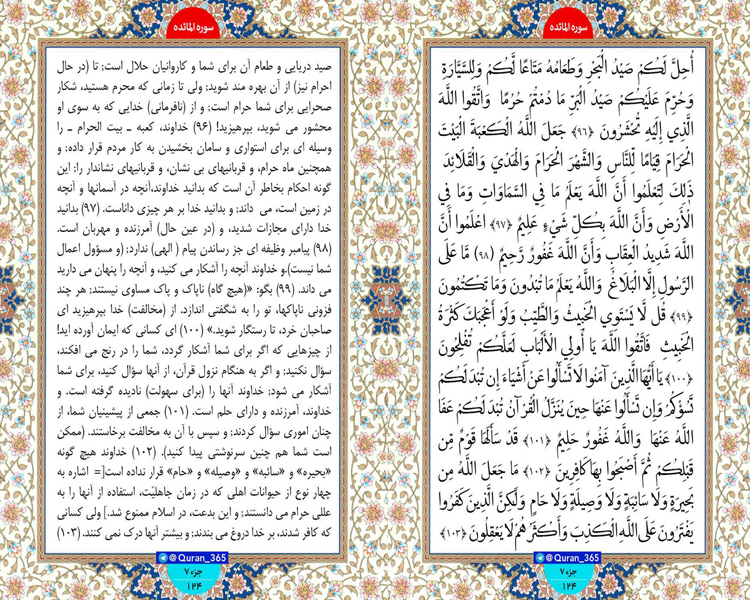 سوره المائده
أُحِلَّ لَكُمْ صَيْدُ الْبَحْرِ وَطَعَامُهُ مَتَاعًا لَّكُمْ وَلِلسَّيَّارَةِ
وَحُرِّمَ عَلَيْكُمْ صَيْدُ الْبَرِّ مَا دُمْتُمْ حُرُمًا وَاتَّقُوا اللَّهَ
الَّذِي إِلَيْهِ تُحْشَرُونَ ﴿۹۶﴾ جَعَلَ اللَّهُ الْكَعْبَةَ الْبَيْتَ
الْحَرَامَ قِيَامًا لِّلنَّاسِ وَالشَّهْرَ الْحَرَامَ وَالْهَدْيَ وَالْقَلَائِدَ
ذَٰلِكَ لِتَعْلَمُوا أَنَّ اللَّهَ يَعْلَمُ مَا فِي السَّمَاوَاتِ وَمَا فِي
الْأَرْضِ وَأَنَّ اللَّهَ بِكُلِّ شَيْءٍ عَلِيمٌ ﴿۹۷﴾ اعْلَمُوا أَنَّ
اللَّهَ شَدِيدُ الْعِقَابِ وَأَنَّ اللَّهَ غَفُورٌ رَّحِيمٌ ﴿۹۸﴾ مَّا عَلَى
الرَّسُولِ إِلَّا الْبَلَاغُ وَاللَّهُ يَعْلَمُ مَا تُبْدُونَ وَمَا تَكْتُمُونَ
﴿۹۹﴾ قُل لَّا يَسْتَوِي الْخَبِيثُ وَالطَّيِّبُ وَلَوْ أَعْجَبَكَ كَثْرَةُ
الْخَبِيثِ فَاتَّقُوا اللَّهَ يَا أُولِي الْأَلْبَابِ لَعَلَّكُمْ تُفْلِحُونَ
﴿۱۰۰﴾ يَا أَيُّهَا الَّذِينَ آمَنُوا لَا تَسْأَلُوا عَنْ أَشْيَاءَ إِن تُبْدَ لَكُمْ
تَسُؤْكُمْ وَإِن تَسْأَلُوا عَنْهَا حِينَ يُنَزَّلُ الْقُرْآنُ تُبْدَ لَكُمْ عَفَا
اللَّهُ عَنْهَا وَاللَّهُ غَفُورٌ حَلِيمٌ ﴿۱۰۱﴾ قَدْ سَأَلَهَا قَوْمٌ مِّن
قَبْلِكُمْ ثُمَّ أَصْبَحُوا بِهَا كَافِرِينَ ﴿۱۰۲﴾ مَا جَعَلَ اللَّهُ مِن
بَحِيرَةٍ وَلَا سَائِبَةٍ وَلَا وَصِيلَةٍ وَلَا حَامٍ وَلَٰكِنَّ الَّذِينَ كَفَرُوا
يَفْتَرُونَ عَلَى اللَّهِ الْكَذِبَ وَأَكْثَرُهُمْ لَا يَعْقِلُونَ ﴿۱۰۳﴾
@Quran_365
جزء ۷
۱۲۴
سوره المائده
صید دریایی و طعام آن برای شما و کاروانیان حلال است؛ تا (در حال
احرام نیز) از آن بهره مند شوید; ولی تا زمانی که محرم هستید، شکار
صحرایی برای شما حرام است; و از (نافرمانی) خدایی که به سوی او
محشور می شوید، بپرهیزید! (۹۶) خداوند، کعبه ـ بیت الحرام ـ را
وسیله ای برای استواری و سامان بخشیدن به کار مردم قرار داده; و
همچنین ماه حرام، و قربانیهای بی نشان، و قربانیهای نشاندار را; این
گونه احکام بخاطر آن است که بدانید خداوند،آنچه در آسمانها و آنچه
در زمین است، می داند; و بدانید خدا بر هر چیزی داناست. (۹۷) بدانید
خدا دارای مجازات شدید، و (در عین حال) آمرزنده و مهربان است.
(۹۸) پیامبر وظیفه ای جز رساندن پیام ( الهی) ندارد; (و مسؤول اعمال
شما نیست).و خداوند آنچه را آشکار می کنید، و آنچه را پنهان می دارید
می داند. (۹۹) بگو: «(هیچ گاه) ناپاک و پاک مساوی نیستند; هر چند
فزونی ناپاکها، تو را به شگفتی اندازد. از (مخالفت) خدا بپرهیزید ای
صاحبان خرد، تا رستگار شوید.» (۱۰۰) ای کسانی که ایمان آورده اید!
از چیزهایی که اگر برای شما آشکار گردد، شما را در رنج می افکند،
سؤال نکنید; و اگر به هنگام نزول قرآن، از آنها سؤال کنید، برای شما
آشکار می شود; خداوند آنها را (برای سهولت) نادیده گرفته است. و
خداوند، آمرزنده و دارای حلم است. (۱۰۱) جمعی از پیشینیان شما، از
چنان اموری سؤال کردند; و سپس با آن به مخالفت برخاستند. (ممکن
است شما هم چنین سرنوشتی پیدا کنید). (۱۰۲) خداوند هیچ گونه
«بحیره» و «سائبه» و «وصیله» و «حام» قرار نداده است[= اشاره به
چهار نوع از حیوانات اهلی که در زمان جاهلیّت، استفاده از آنها را به
عللی حرام می دانستند; و این بدعت، در اسلام ممنوع شد.] ولی کسانی
که کافر شدند، بر خدا دروغ می بندند; و بیشتر آنها درک نمی کنند. (۱۰۳)
@Quran_365
جزء ۷
۱۲۴